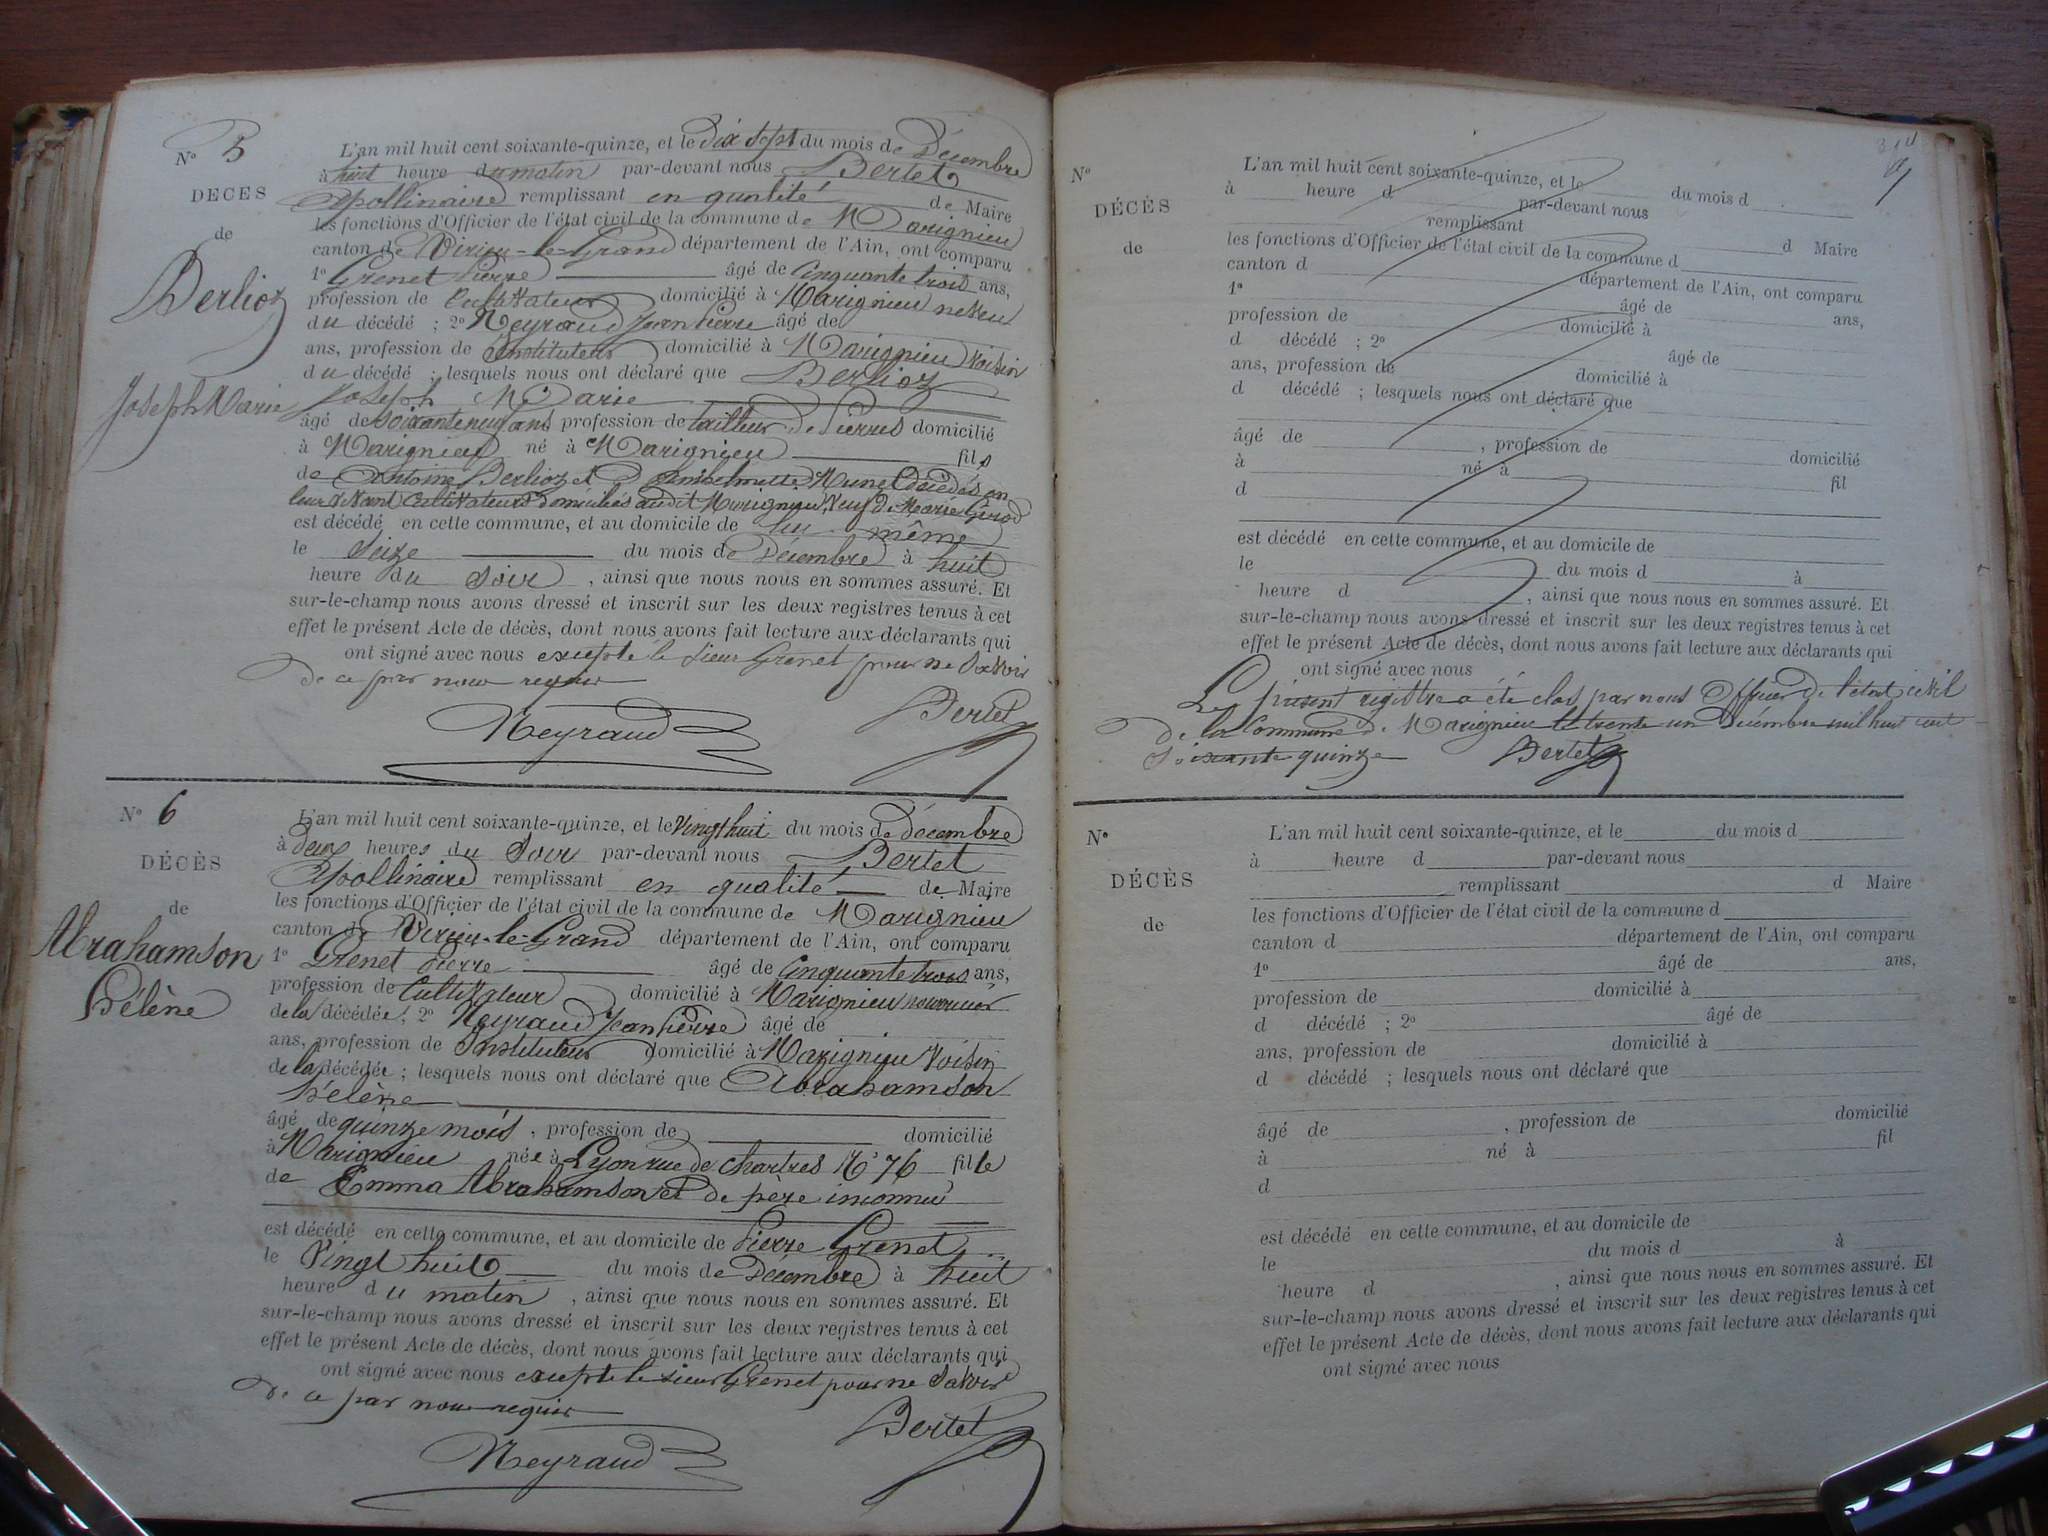 N° 5
DÉCÈS
de
Berlioz
Joseph Marie
L'an mil huit cent soixante-quinze, et le dix sept du mois de Décembre
à huit heure du matin par-devant nous Bertet
Apollinaire remplissant en qualité de Maire
les fonctions d'Officier de l'état civil de la commune de Marignieu
canton de Virieu-le-Grand département de l'Ain, ont comparu
1° Grenet Pierre âgé de Cinquante trois ans,
profession de Cultivateur domicilié à Marignieu neveu
du décédé ; 2° Neyraud Jean Pierre âgé de
ans, profession de Instituteur domicilié à Marignieu Voisin
du décédé ; lesquels nous ont déclaré que Berlioz
Joseph Marie
âgé de soixante neuf ans profession de tailleur de Pierres domicilié
à Marignieu né à Marignieu fils
de Antoine Berlioz et d' Munet décédés en
leur vivant Cultivateurs domiciliés audit Marignieu, Veuf de Marie
est décédé en cette commune, et au domicile de lui même
le Seize du mois de Décembre à huit
heure du Soir , ainsi que nous nous en sommes assuré. Et
sur-le-champ nous avons dressé et inscrit sur les deux registres tenus à cet
effet le présent Acte de décès, dont nous avons fait lecture aux déclarants qui
ont signé avec nous excepté le sieur Grenet pour ne savoir
de ce par nous requis
Neyraud Bertet
N° 6
DÉCÈS
de
Abrahamson
Hélène
L'an mil huit cent soixante-quinze, et le Vingt huit du mois de décembre
à deux heures du Soir par-devant nous Bertet
Apollinaire remplissant en qualité de Maire
les fonctions d'Officier de l'état civil de la commune de Marignieu
canton de Virieu-le-Grand département de l'Ain, ont comparu
1° Grenet Pierre âgé de Cinquante trois ans,
profession de Cultivateur domicilié à Marignieu nourricier
de la décédée, 2° Neyraud Jean Pierre âgé de
ans, profession de Instituteur domicilié à Marignieu Voisin
de la décédée ; lesquels nous ont déclaré que Abrahamson
Hélène
âgé de quinze mois , profession de domicilié
à Marignieu née à Lyon rue de Chartres N° 76 fille
de Emma Abrahamson et de père inconnu
est décédé en cette commune, et au domicile de Pierre Grenet
le Vingt huit du mois de Décembre à huit
heure du matin , ainsi que nous nous en sommes assuré. Et
sur-le-champ nous avons dressé et inscrit sur les deux registres tenus à cet
effet le présent Acte de décès, dont nous avons fait lecture aux déclarants qui
ont signé avec nous excepté le sieur Grenet pour ne savoir
de ce par nous requis
Neyraud Bertet
N°
DÉCÈS
de
L'an mil huit cent soixante-quinze, et le du mois d
à heure d par-devant nous
remplissant d Maire
les fonctions d'Officier de l'état civil de la commune d
canton d département de l'Ain, ont comparu
1° âgé de ans,
profession de domicilié à
d décédé ; 2° âgé de
ans, profession de domicilié à
d décédé ; lesquels nous ont déclaré que
âgé de , profession de domicilié
à né à fil
d
est décédé en cette commune, et au domicile de
le du mois d à
heure d , ainsi que nous nous en sommes assuré. Et
sur-le-champ nous avons dressé et inscrit sur les deux registres tenus à cet
effet le présent Acte de décès, dont nous avons fait lecture aux déclarants qui
ont signé avec nous
Le présent registre a été clos par nous Officier de l'état civil
de la Commune de Marignieu le trente un Décembre mil huit cent
soixante quinze Bertet
N°
DÉCÈS
de
L'an mil huit cent soixante-quinze, et le du mois d
à heure d par-devant nous
remplissant d Maire
les fonctions d'Officier de l'état civil de la commune d
canton d département de l'Ain, ont comparu
1° âgé de ans,
profession de domicilié à
d décédé ; 2° âgé de
ans, profession de domicilié à
d décédé ; lesquels nous ont déclaré que
âgé de , profession de domicilié
à né à fil
d
est décédé en cette commune, et au domicile de
le du mois d à
heure d , ainsi que nous nous en sommes assuré. Et
sur-le-champ nous avons dressé et inscrit sur les deux registres tenus à cet
effet le présent Acte de décès, dont nous avons fait lecture aux déclarants qui
ont signé avec nous